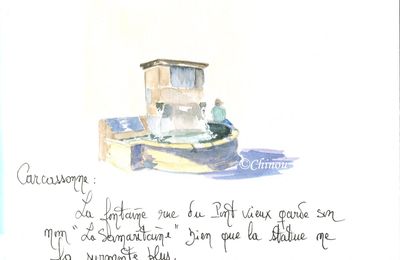 ©Chinou
Carcassonne :
La fontaine rue du Pont vieux garde son
nom "La Samaritaine" bien que la statue ne
la surmonte plus.